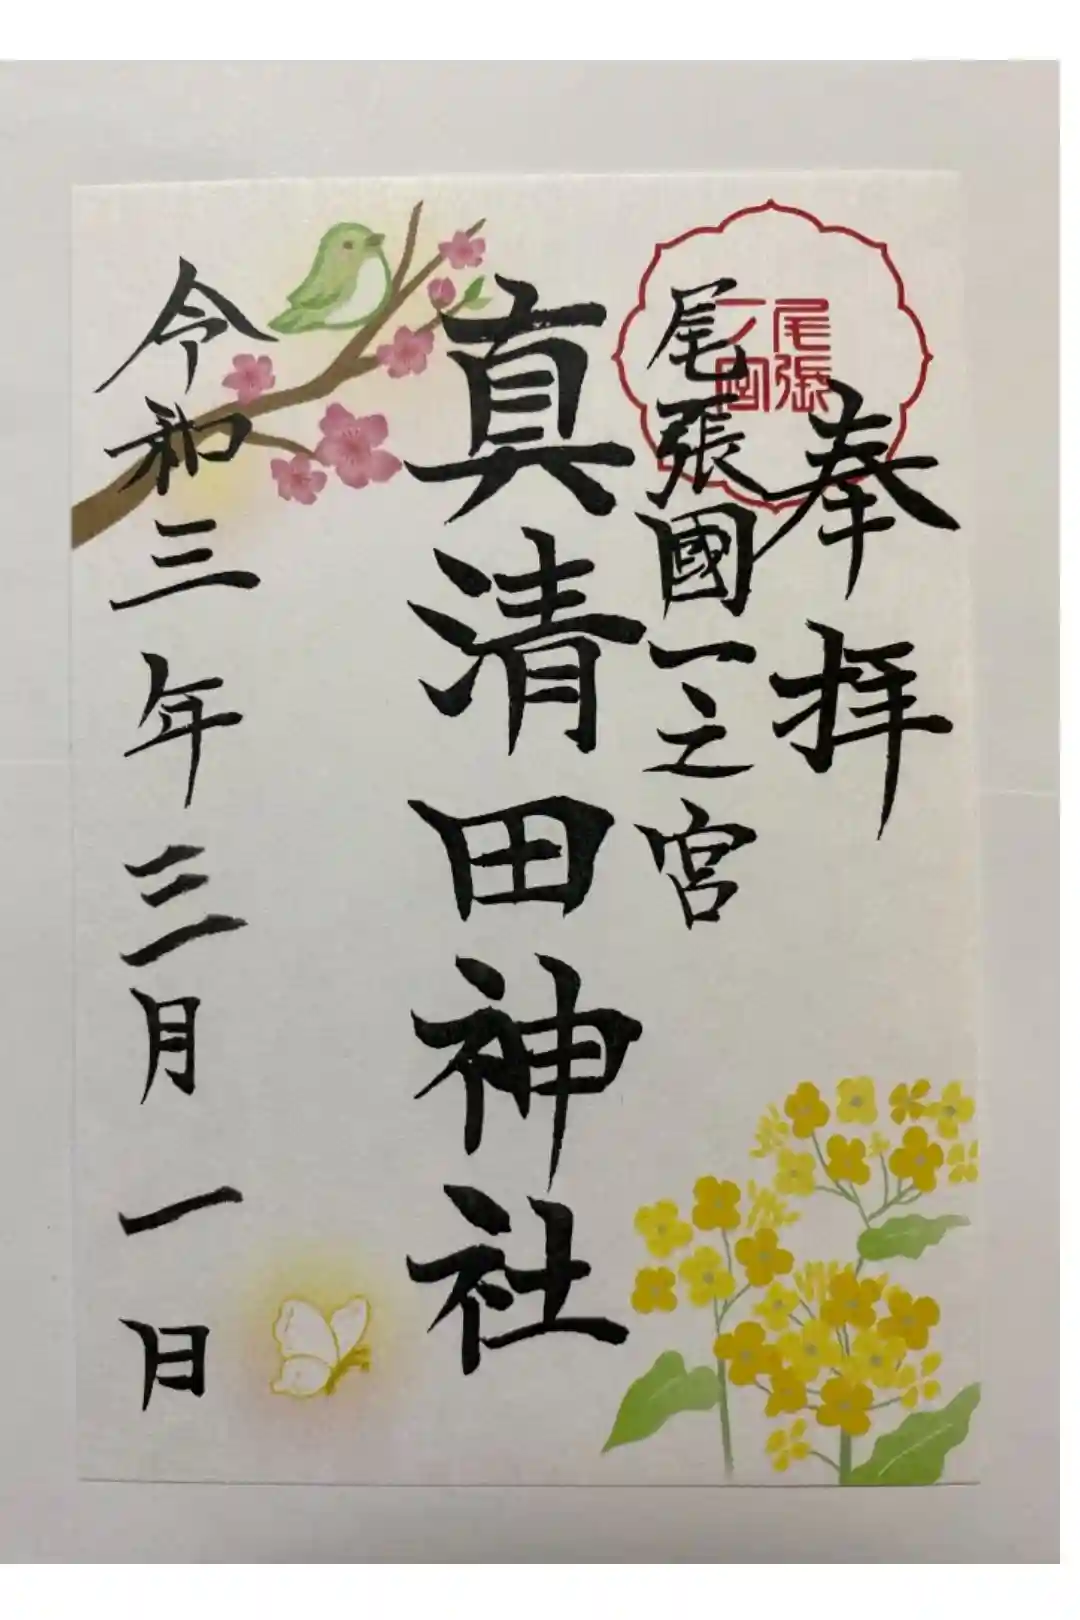 奉拝
尾張國一之宮
尾張
一ノ宮
真清田神社
令和三年三月一日